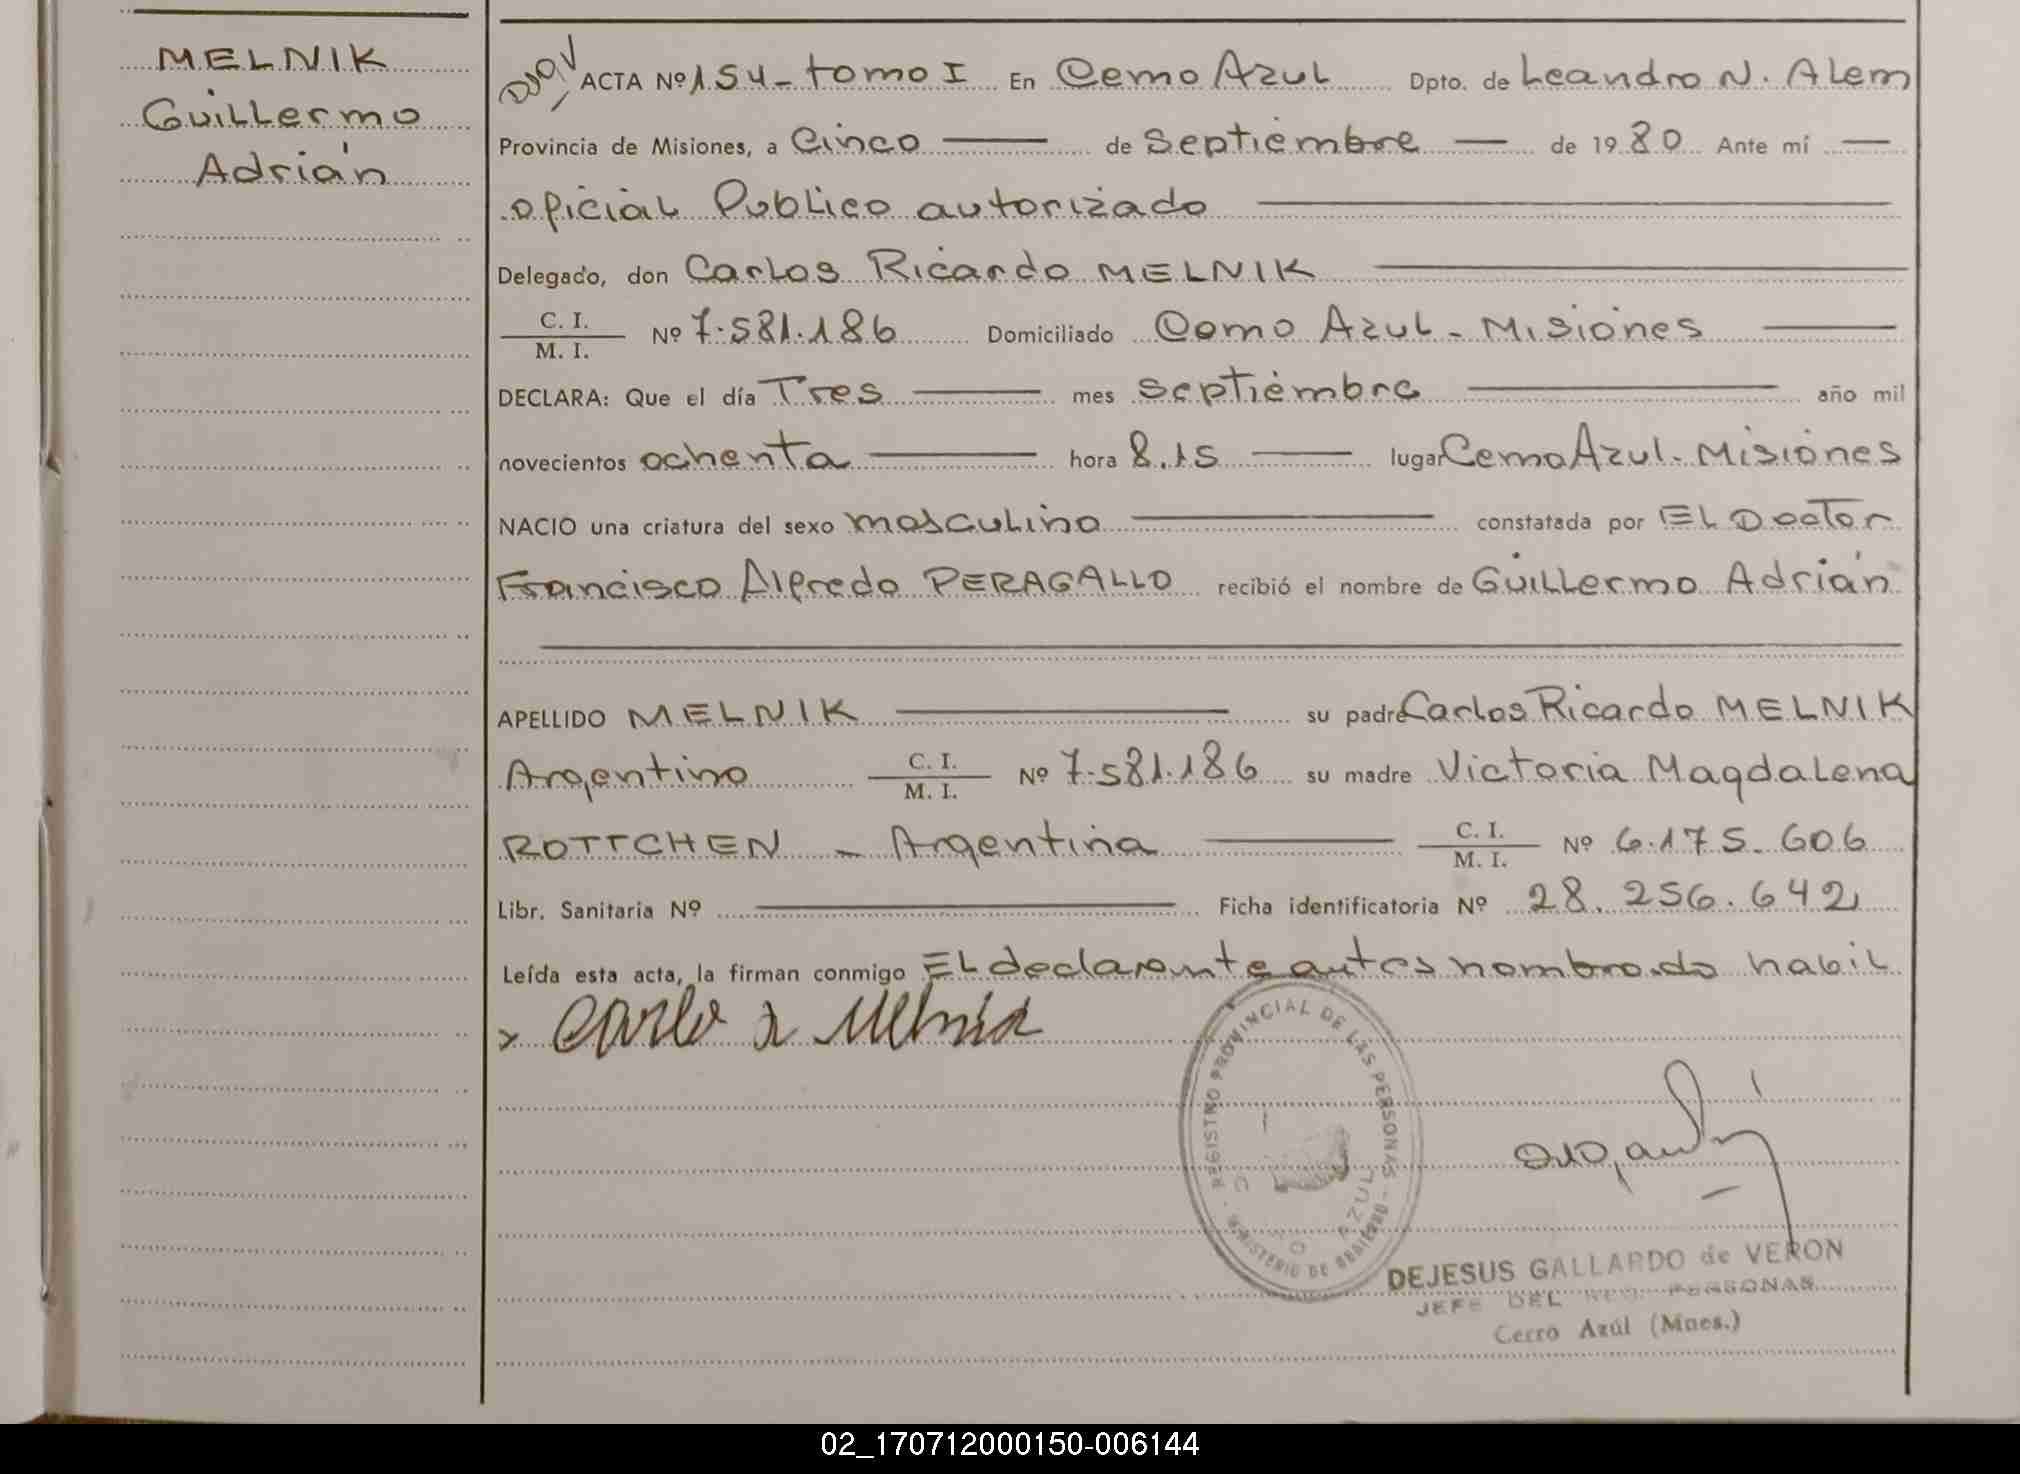 MELNIK
Guillermo
Adrián
ACTA Nº 154 - tomo I En Cerro Azul Dpto. de Leandro N. Alem
Provincia de Misiones, a Cinco — de Septiembre — de 1980 Ante mí —
oficial Publico autorizado —
Delegado, don Carlos Ricardo MELNIK —
C. I.
M. I. Nº 7.581.186 Domiciliado Cerro Azul - Misiones —
DECLARA: Que el día Tres — mes Septiembre — año mil
novecientos ochenta — hora 8.15 — lugar Cerro Azul - Misiones
NACIO una criatura del sexo masculino — constatada por El Doctor
Francisco Alfredo PERAGALLO recibió el nombre de Guillermo Adrián
—
APELLIDO MELNIK — su padre Carlos Ricardo MELNIK
Argentino C. I. M. I. Nº 7.581.186 su madre Victoria Magdalena
ROTTCHEN - Argentina — C. I. M. I. Nº 6.175.606
Libr. Sanitaria Nº — Ficha identificatoria Nº 28.256.642
Leída esta acta, la firman conmigo El declarante antes nombrado habil
x Carlo R Melnik
REGISTRO PROVINCIAL DE LAS PERSONAS - MINISTERIO DE GOBIERNO
AZUL
DEJESUS GALLARDO de VERON
JEFE DEL REG. PERSONAS
Cerro Azúl (Mnes.)
02_170712000150-006144